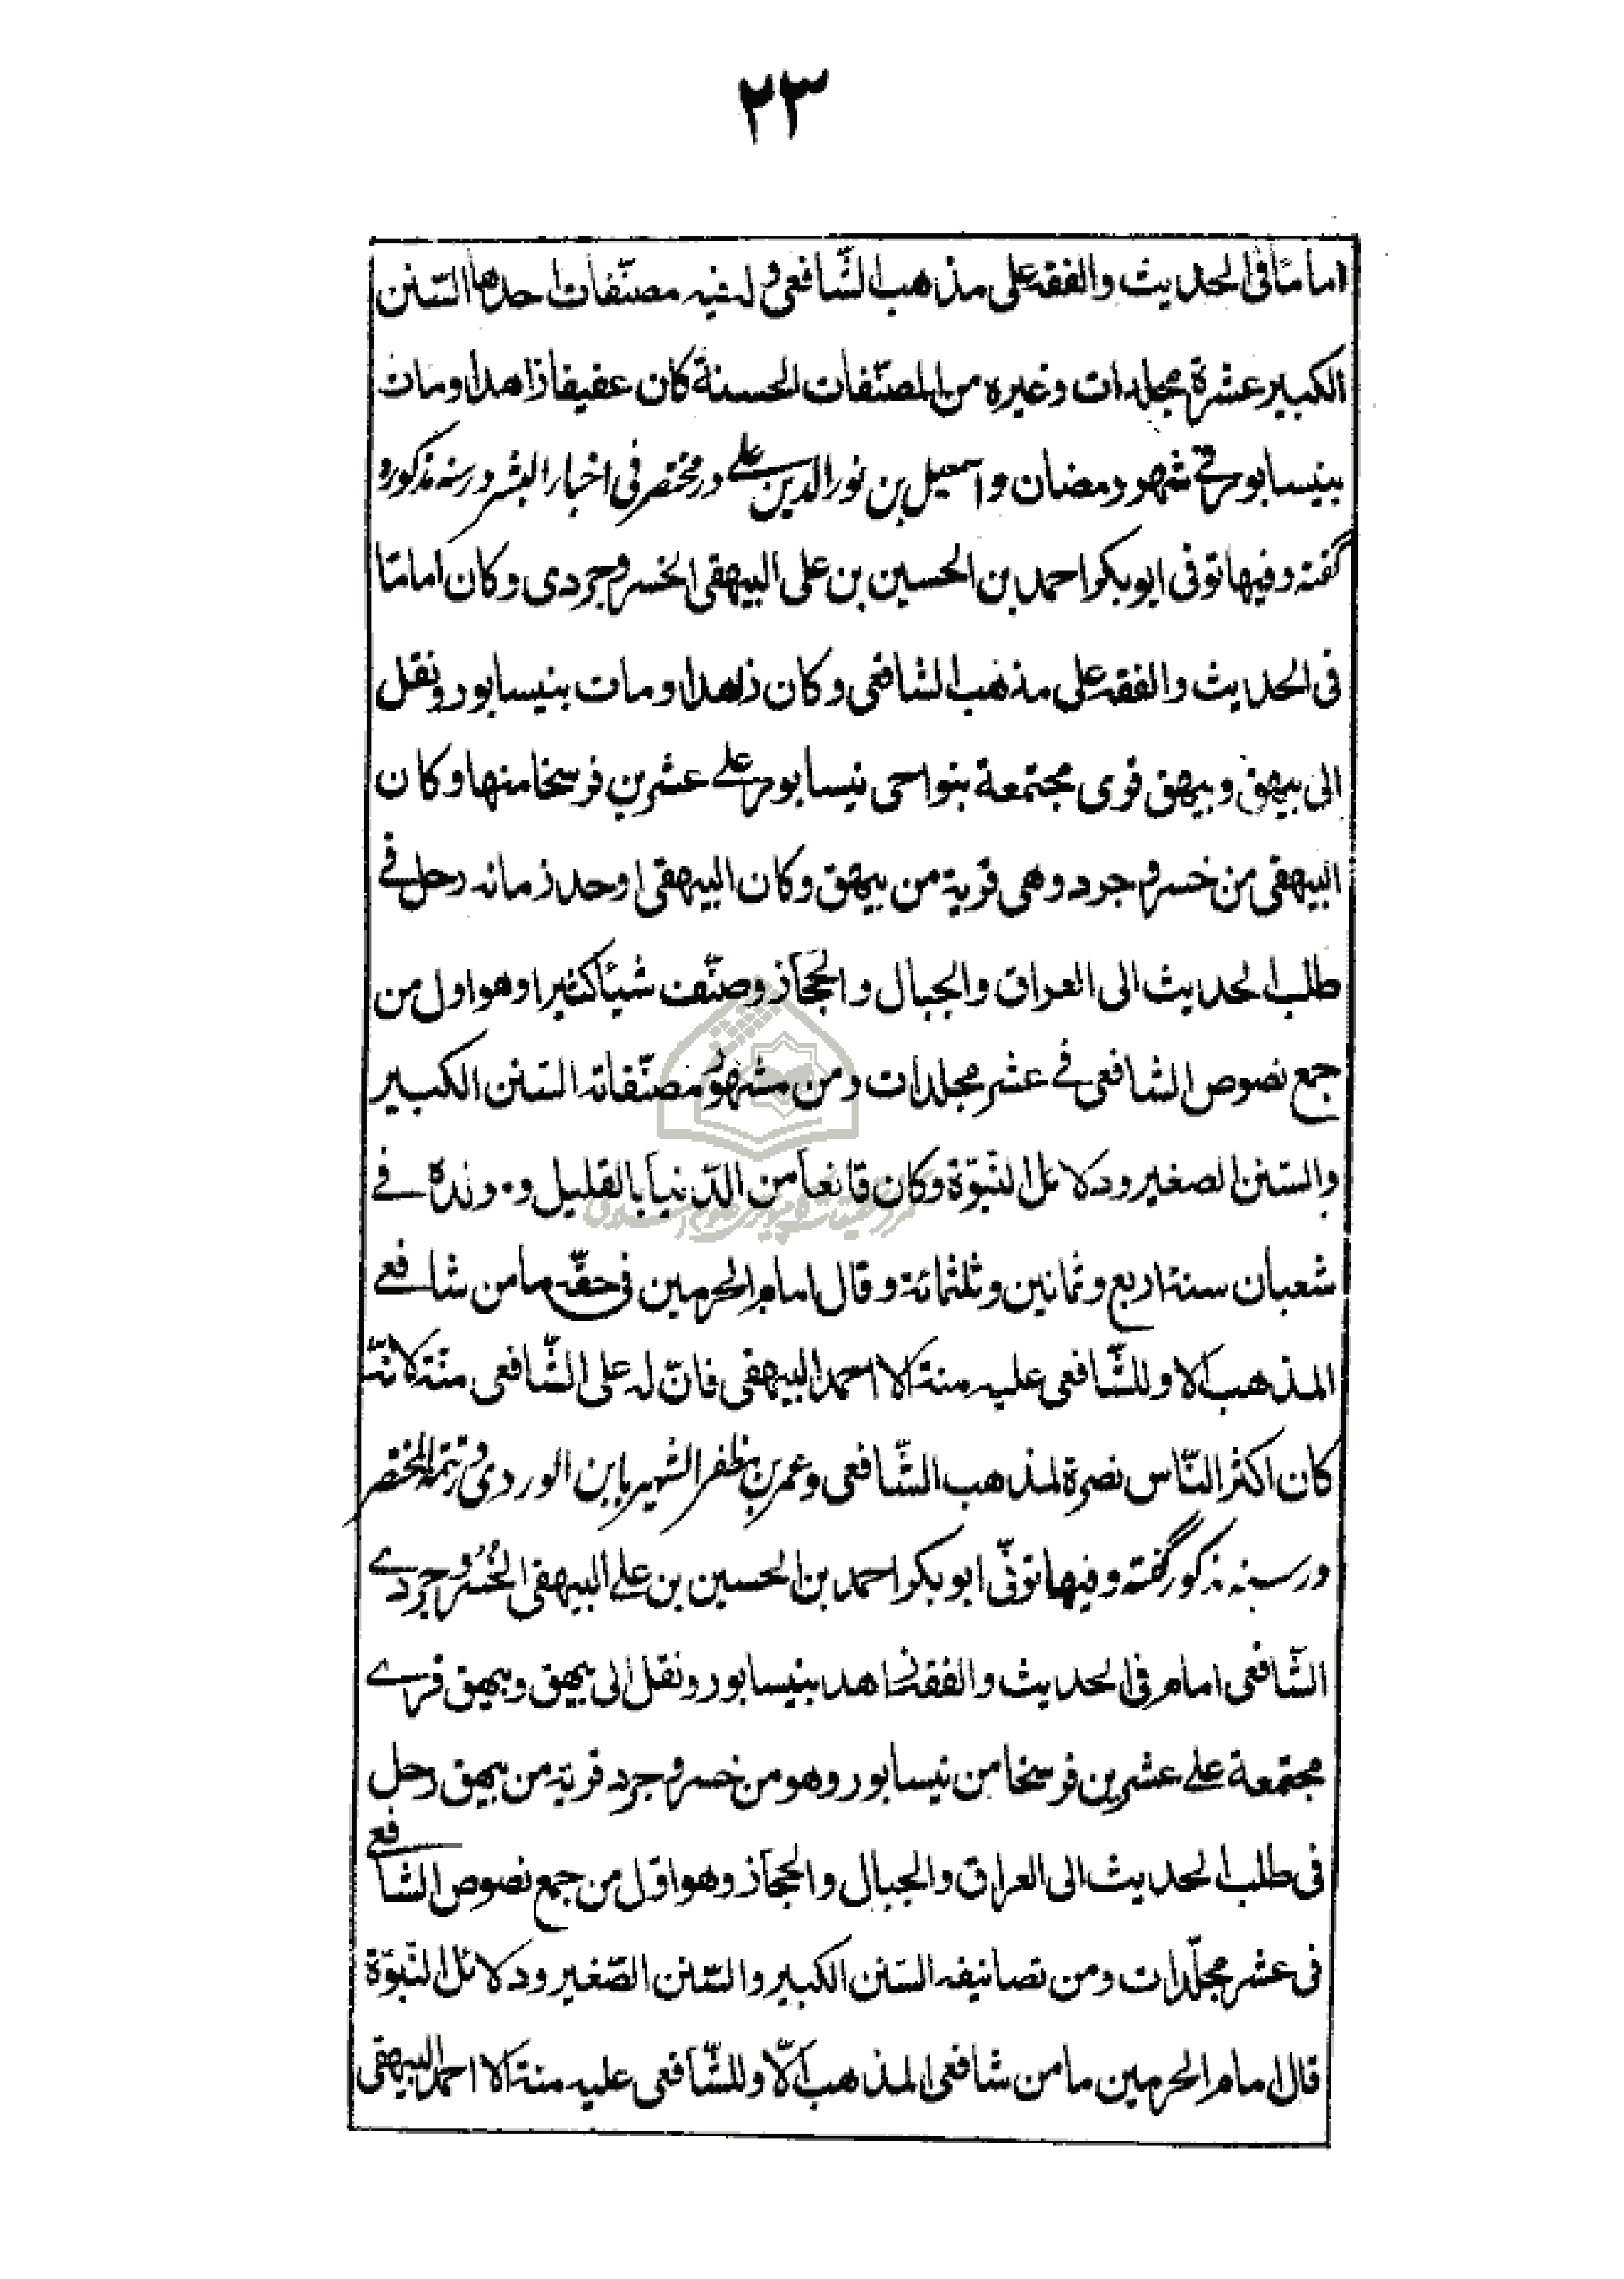 ٢٣
اماما فى الحديث والفقه على مذهب الشّافعى وله فيه مصنّفات احدها السّنن
الكبير عشرة مجلدات وغيره من المصنّفات الحسنة كان عفيفا زاهدا ومات
بنيسابور فى شهور رمضان و اسمعيل بن نور الدين على در مختصر فى اخبار البشر در سنه مذكوره
گفته وفيها توفى ابوبكر احمد بن الحسين بن على البيهقى الخسروجردى وكان اماما
فى الحديث والفقه على مذهب الشافعى وكان زاهدا ومات بنيسابور ونقل
الى بيهق وبيهق قرى مجتمعة بنواحى نيسابور على عشرين فرسخا منها وكان
البيهقى من خسروجرد وهى قرية من بيهق وكان البيهقى اوحد زمانه رحل فے
طلب الحديث الى العراق والجبال والحجاز وصنّف شيئا كثيرا وهو اول من
جمع نصوص الشافعى فے عشر مجلدات ومن مشهور مصنّفاته السنن الكبير
والسّنن الصغير ودلائل النّبوّة وكان قانعا من الدّنيا بالقليل و مولده فے
شعبان سنة اربع وثمانين وثلثمائة وقال امام الحرمين فى حقّه ما من شافعے
المذهب الا وللشّافعى عليه منة الا احمد البيهقى فانّ له على الشّافعى منّة لانّه
كان اكثر النّاس نصرة لمذهب الشّافعى وعمر بن مظفر الشهير بابن الوردى در تتمة المختصر
در سنه مذكور گفته وفيها توفّى ابوبكر احمد بن الحسين بن على البيهقى الخُسْروجردے
الشّافعى امام فى الحديث والفقه زاهد بنيسابور ونقل الى بيهق وبيهق قرے
مجتمعة علے عشرين فرسخا من نيسابور وهو من خسروجرد قرية من بيهق رحل
فى طلب الحديث الى العراق والجبال والحجاز وهو اوّل من جمع نصوص الشافعے
فى عشر مجلّدات ومن تصانيفه السّنن الكبير والسّنن الصّغير ودلائل النّبوّة
قال امام الحرمين ما من شافعى المذهب الّا وللشّافعى عليه منة الا احمد البيهقى